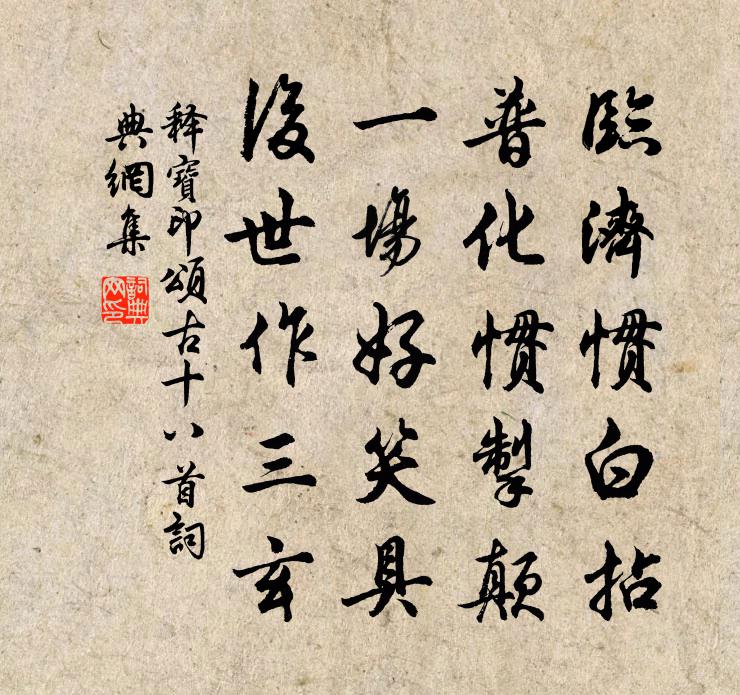 臨濟慣白拈
普化慣掣顛
一場好笑具
後世作三玄
释寶印頌古十八首詞
典網集
詞典網印